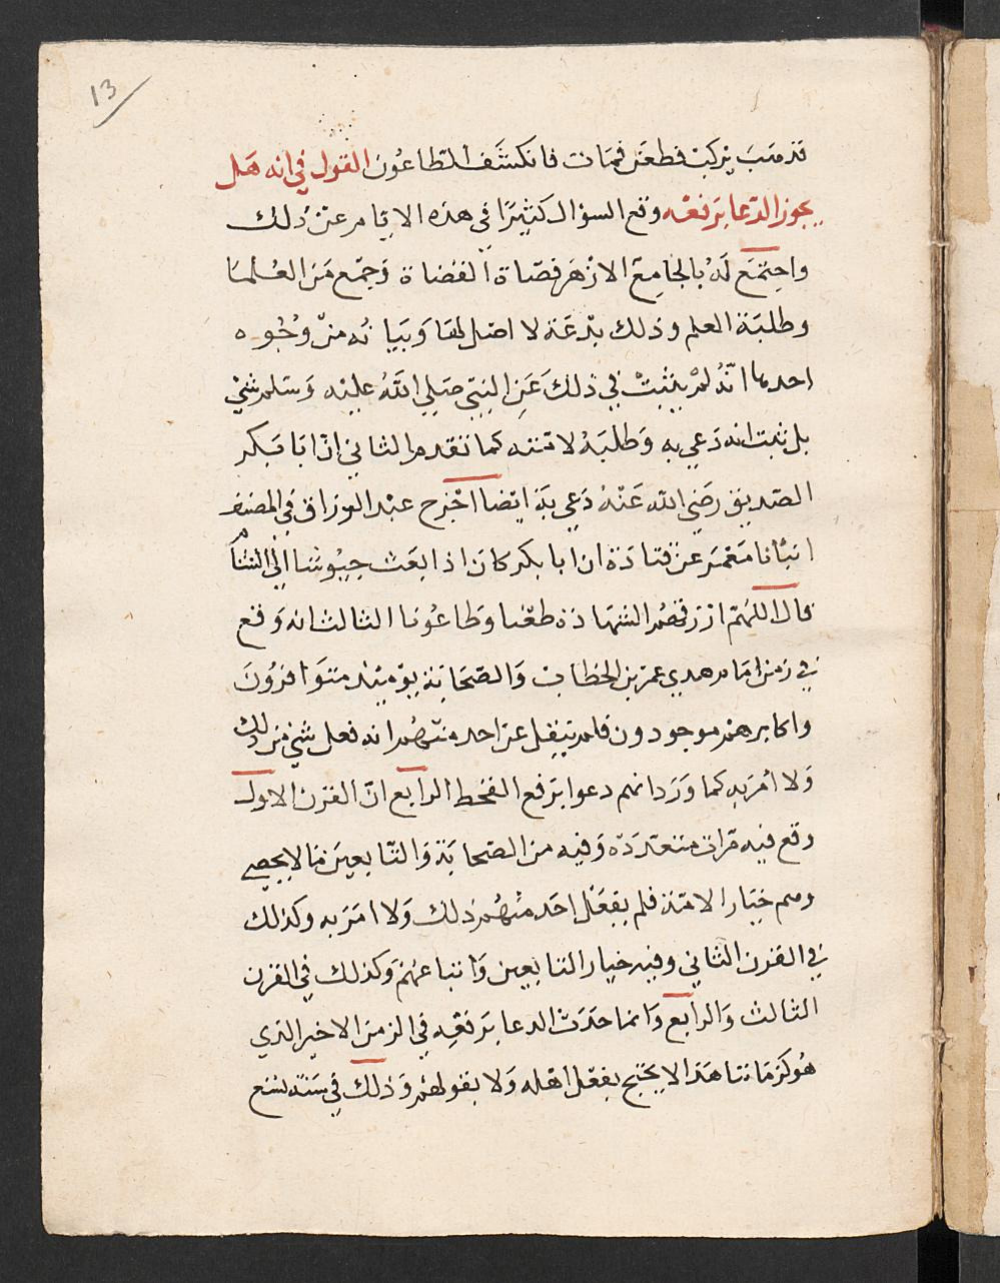 13
قد هب يركب فطعن فمات فانكشف الطاعون القول في انه هل
يجوز الدعا برفعه وقع السؤال كثيرا في هذه الايام عن ذلك
واجتمع له بالجامع الازهر قضاة القضاة وجمع من العلما
وطلبة العلم وذلك بدعة لا اصل لها وبيانه من وجوه
احدها انه لم يثبت في ذلك عن النبي صلي الله عليه وسلم شي
بل ثبت انه دعي به وطلبه لامته كما تقدم الثاني ان ابا بكر
الصديق رضي الله عنه دعي به ايضا اخرج عبد الرزاق في المصنف
انبأنا معمر عن قتادة ان ابا بكر كان اذا بعث جيوشا الي الشام
قال اللهم ارزقهم الشهادة طعنا وطاعونا الثالث انه وقع
في زمن امام هدي عمر بن الخطاب والصحابة يومئذ متوافرون
واكابرهم موجودون فلم ينقل عن احد منهم انه فعل شي من ذلك
ولا امر به كما ورد انهم دعوا برفع القحط الرابع ان القرن الاول
وقع فيه مرات متعددة وفيه من الصحابة والتابعين ما لا يحصي
وهم خيار الامة فلم يفعل احد منهم ذلك ولا امر به وكذلك
في القرن الثاني وفيه خيار التابعين واتباعهم وكذلك في القرن
الثالث والرابع وانما حدث الدعا برفعه في الزمن الاخير الذي
هو كزماننا هذا لا يحتج بفعل اهله ولا بقولهم وذلك في سنة تسع